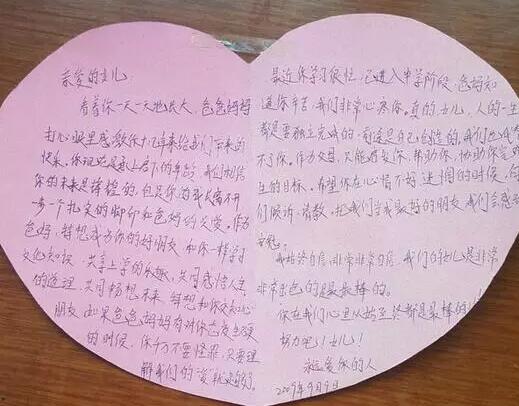 亲爱的女儿
看着你一天一天地长大,爸爸妈妈
打心眼里感激你十几年来给我们带来的
快乐。你现在是承上启下的年龄,我们相信
你的未来是辉煌的,但是你的成长离不开
一步一个扎实的脚印和爸妈的关爱。作为
爸妈,特想成为你的好朋友,和你一样学习
文化知识,共享上学的乐趣,共同感悟人生
的道理,共同畅想未来,特想和你交知心
朋友,如果爸爸妈妈有对你态度生硬
的时候,你千万不要怪罪,只要理
解我们的"爱"就足够了。
最近你学习很忙,已进入中学阶段,爸妈知
道你辛苦,我们非常心疼你。真的,女儿,人的一生
都是要独立完成的,前途是自己创造的,我们也代替
不了你。作为父母,只能培养你,帮助你,协助你完成
生的目标,希望你在心情不好、迷惘的时候,向
们倾诉、请教,把我们当成最好的朋友,我们会感到

我始终自信,非常非常自信,我们的女儿是非常
非常出色的,是最最棒的。
你在我们心里从始至终都是最棒的!
努力吧!女儿!
永远爱你的人
2009年9月9日